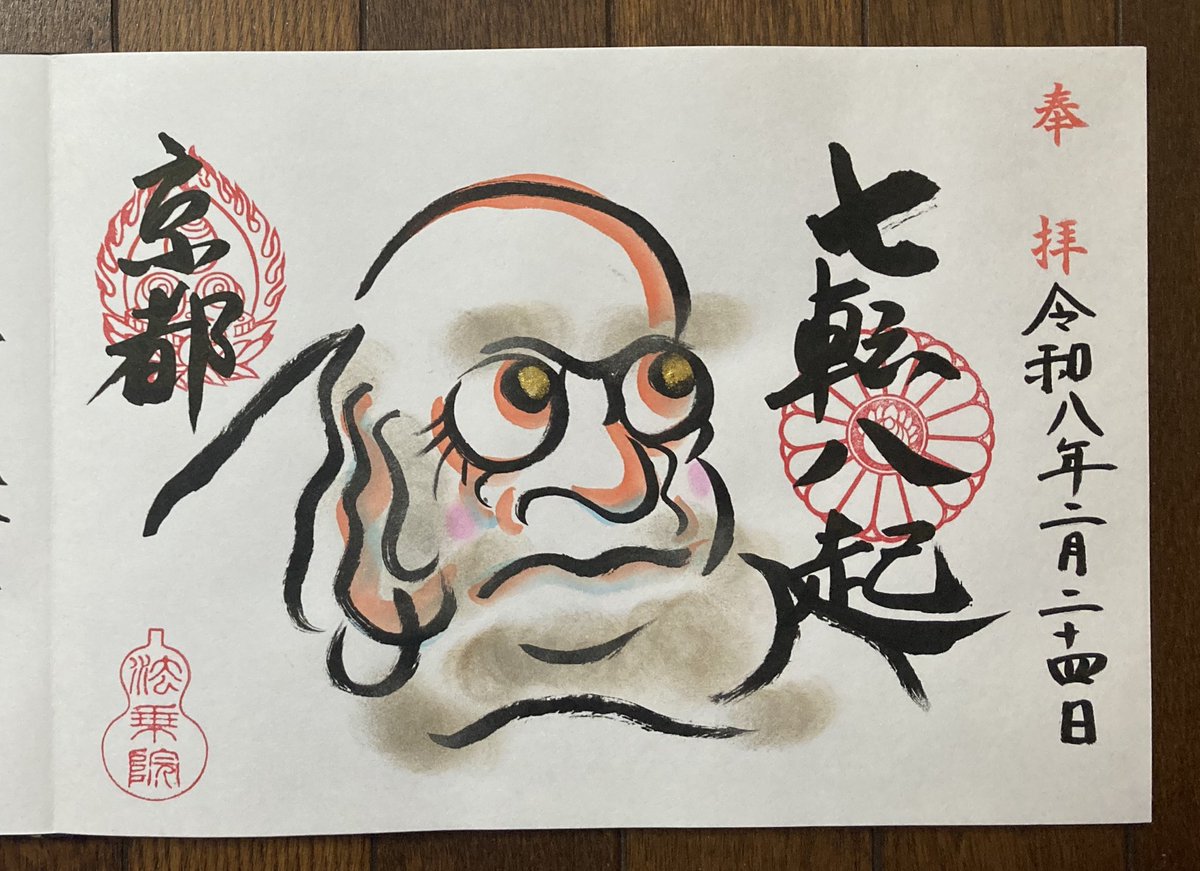 奉拝
令和八年二月二十四日
七転八起
京都
法乗院